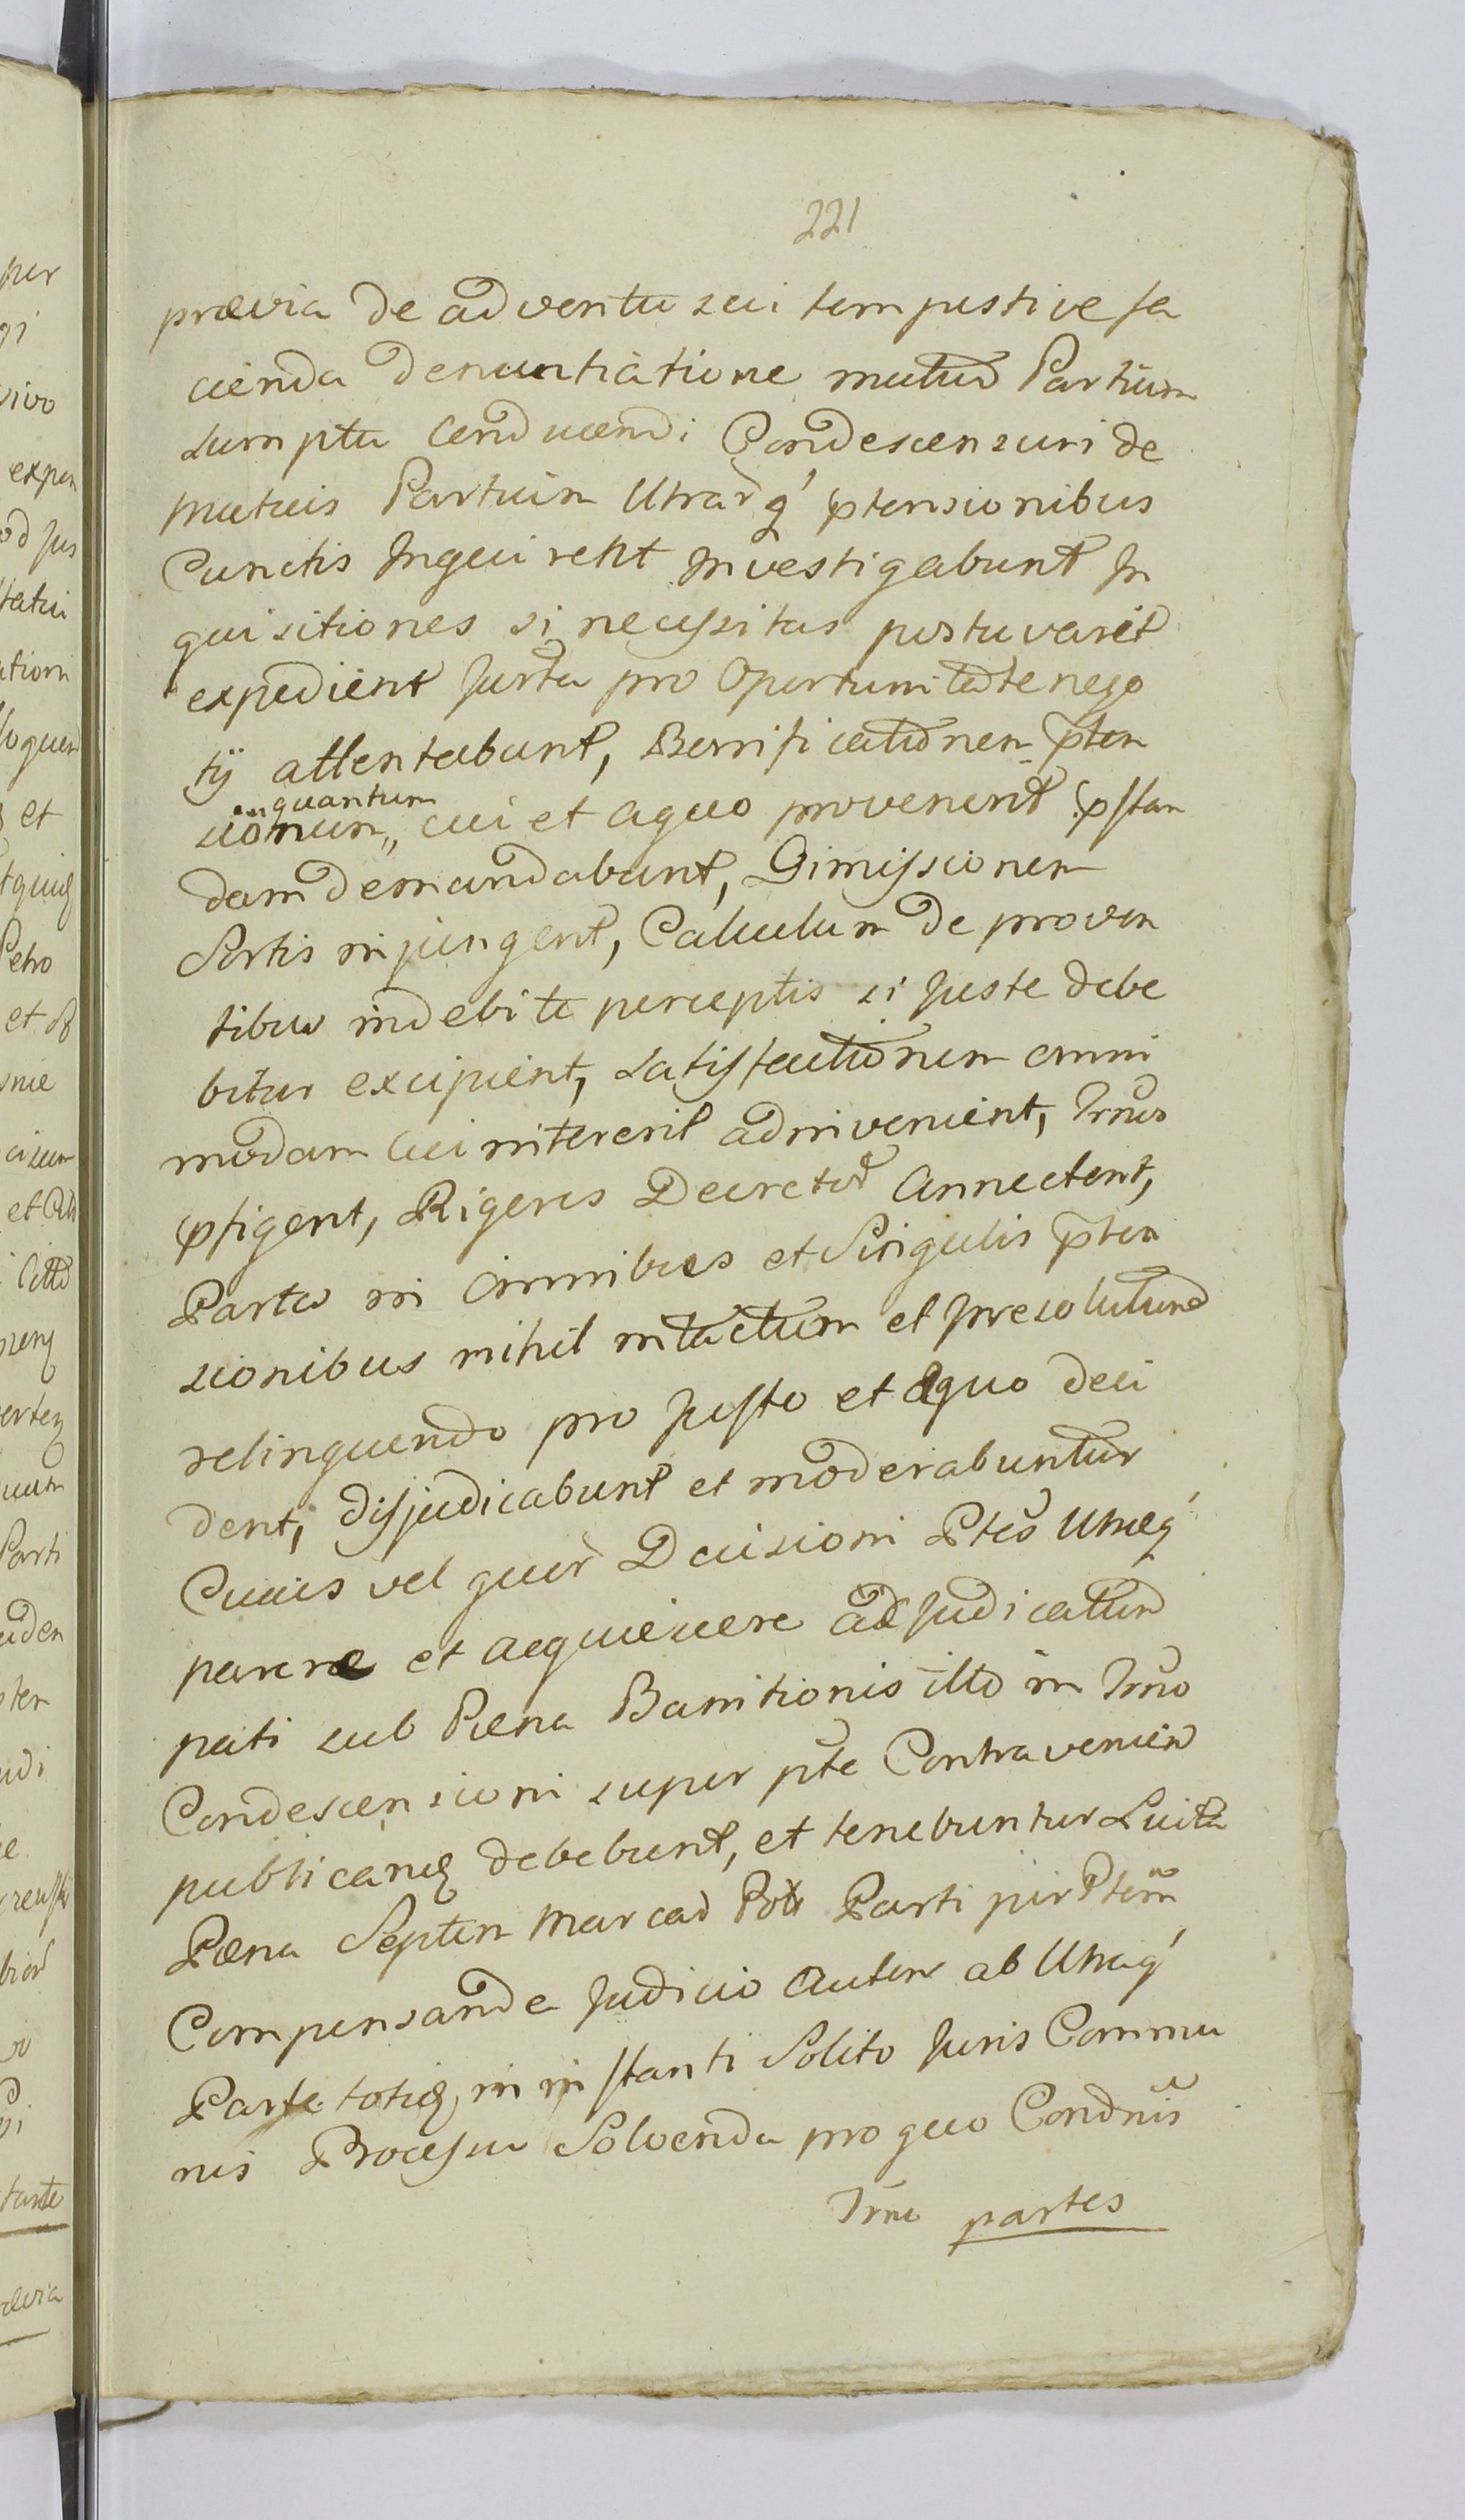 221
prævia de adventu sui tempestive fa
cienda denuntiatione mutuo Partium
sumptu Conducendi Condescensuri de
mutuis Partium Utrarq' ptensionibus
Cunctis Inquirent Investigabunt In
quisitiones si necessitas postuvarit
expedient Jurta pro Oportunitate nego
tij attentabunt, Bonificationem pten
inquantum
sionum,, cui et aquo provenerit pstan
dam demandabunt, Dimissionem
Sortis injungent, Calculum de proven
tibus indebite perceptis si juste debe
bitur excipient, satisfactionem omni
modam Cui intererit adinvenient, Trnos
pfigent, Rigores Decreto Annectent,
Partes in Omnibus et Singulis pten
sionibus nihil intactum et Iresolutum
relinquendo pro Justo et Aequo deci
dent, disjudicabunt et moderabuntur
Cuius vel quor Decisioni Ptes Utræq'
parere et acquiescere adjudicatum
pati sub Pæna Banitionis illo in Trno
Condescensioni super pte Contravenien
publicanq debebunt, et tenebuntur Luita
Pæna Septem marcar Pol Parti per Ptem
Compensanda Judicio autem ab Utraq'
Parte totieq in instanti Solito Juris Commu
nis Processu Solvenda pro quo Condnis
Trno partes
per
gi
vivo
expen
od jus
et
Petro
et